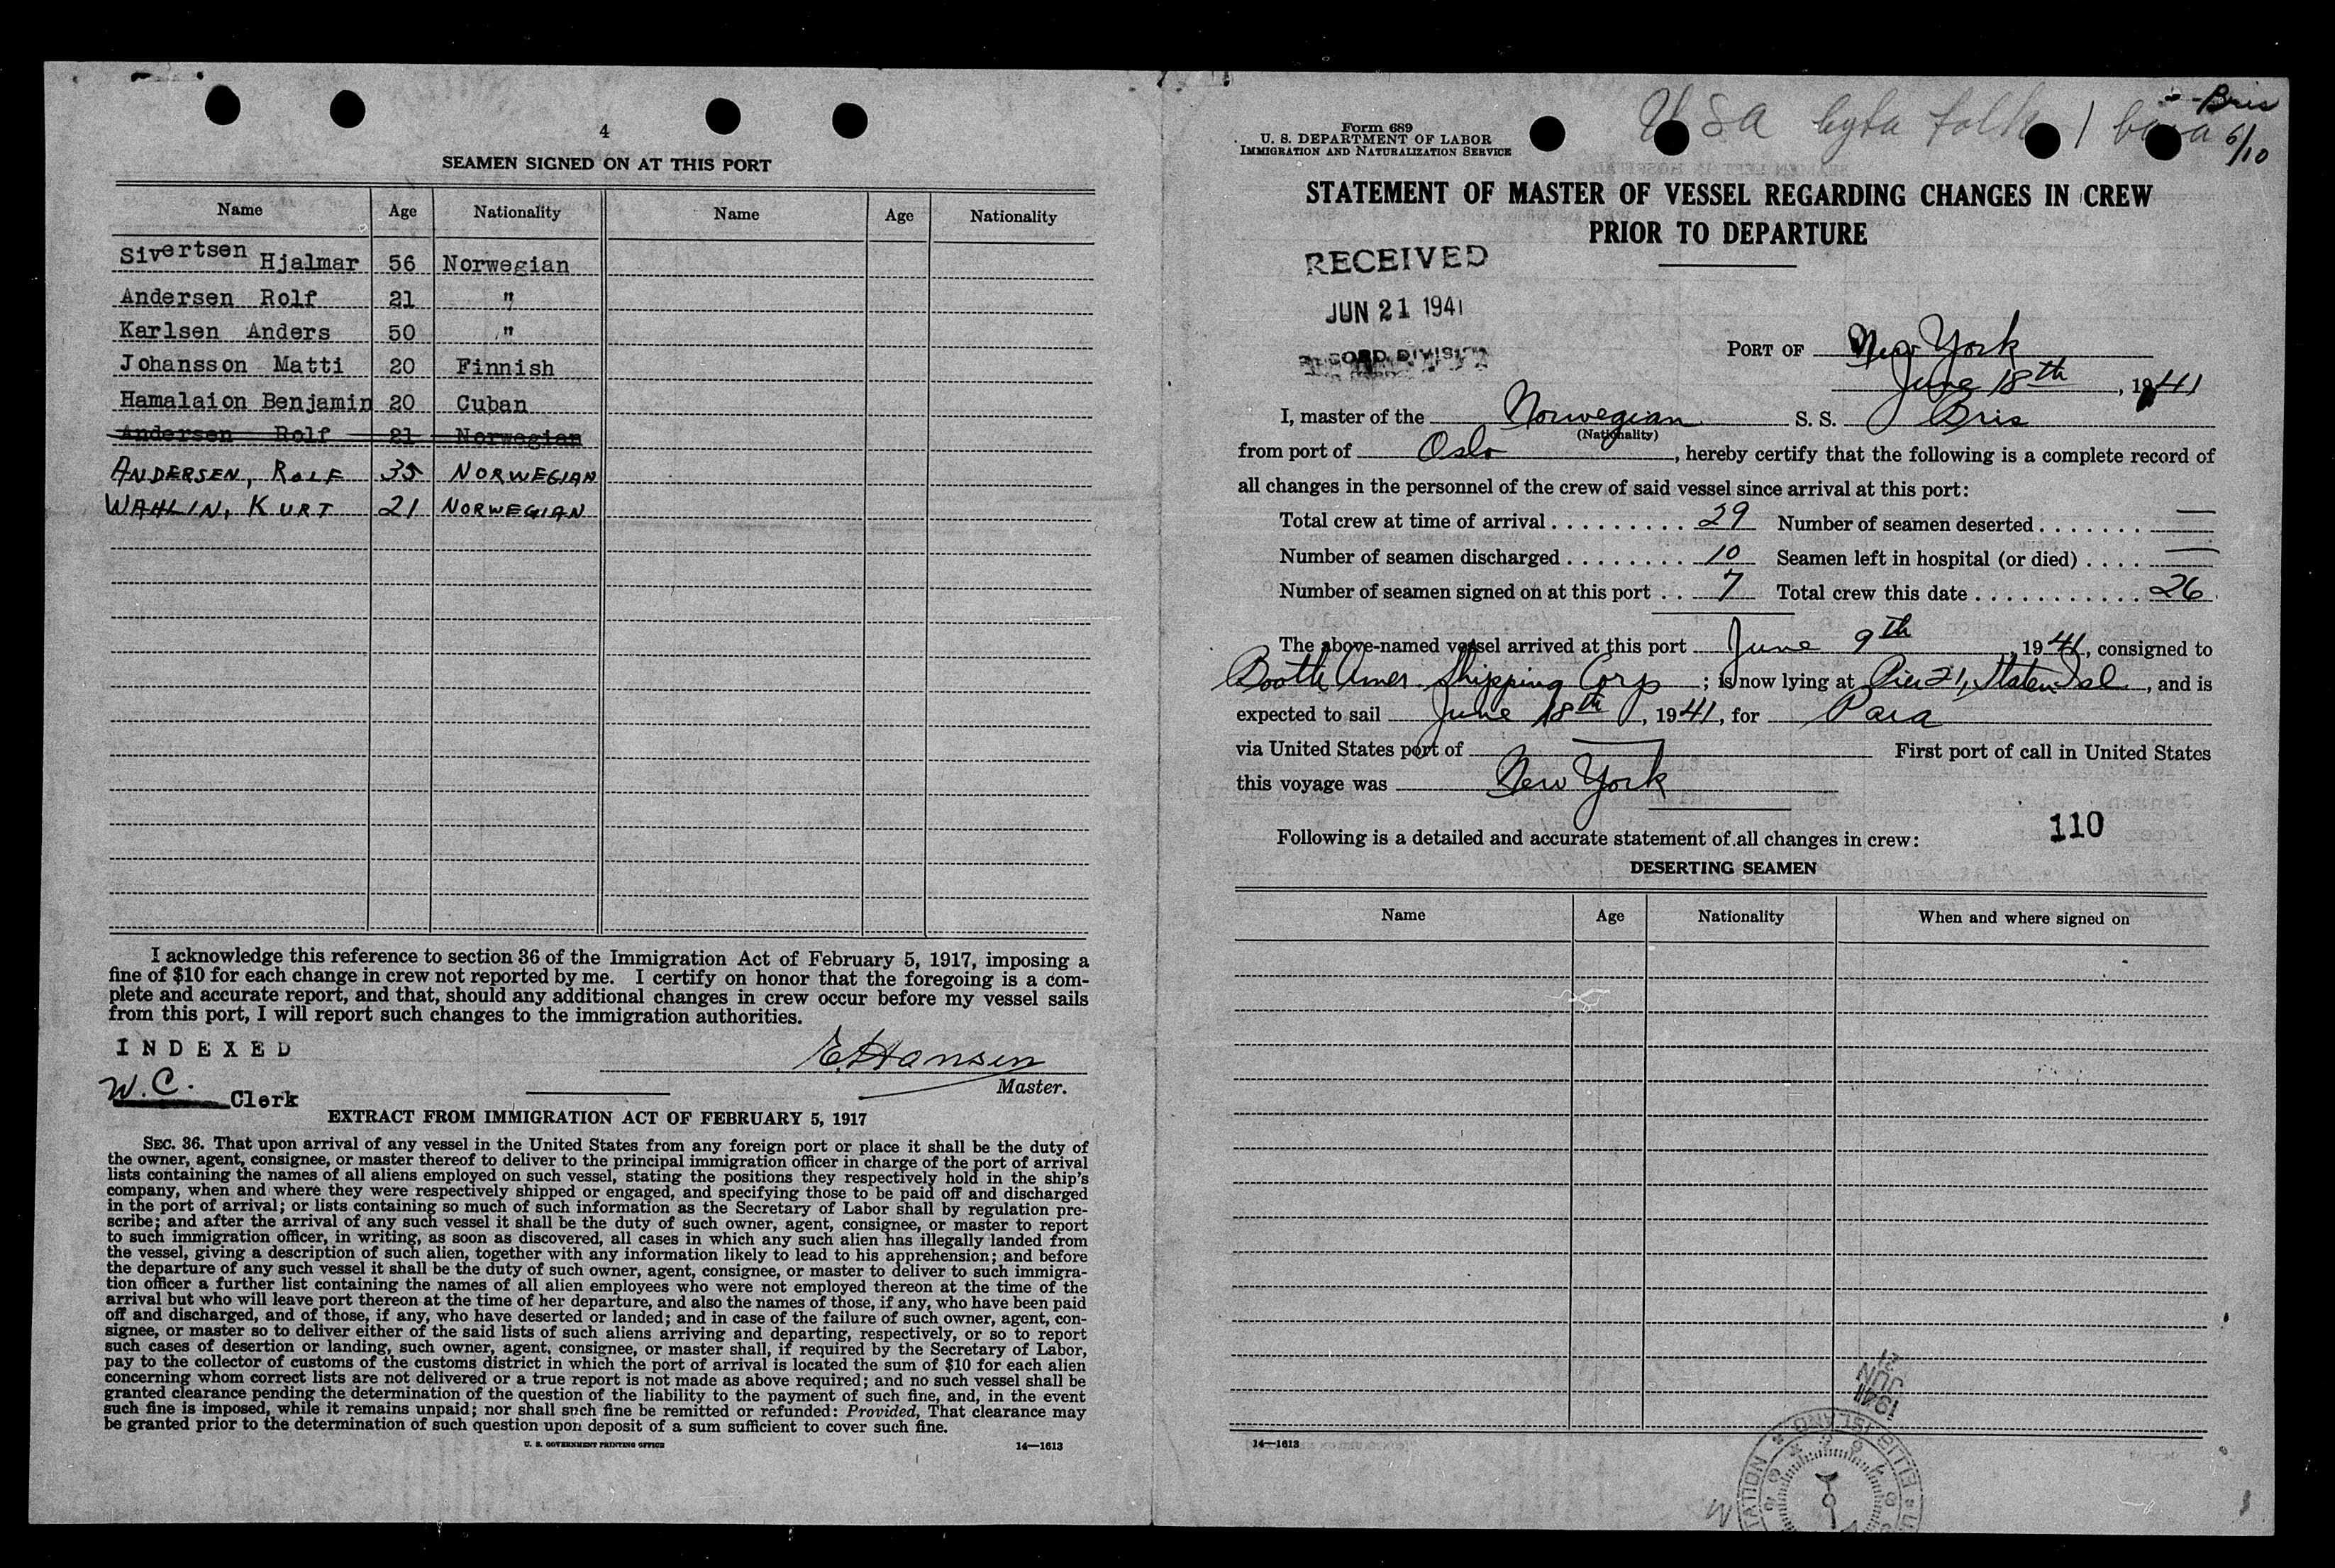 4
SEAMEN SIGNED ON AT THIS PORT
Name Age Nationality Name Age Nationality
Sivertsen Hjalmar 56 Norwegian
Andersen Rolf 21 "
Karlsen Anders 50 "
Johansson Matti 20 Finnish
Hamalaion Benjamin 20 Cuban
Andersen Rolf 21 Norwegian
ANDERSEN, ROLF 35 NORWEGIAN
WAHLIN, KURT 21 NORWEGIAN
I acknowledge this reference to section 36 of the Immigration Act of February 5, 1917, imposing a
fine of $10 for each change in crew not reported by me. I certify on honor that the foregoing is a com-
plete and accurate report, and that, should any additional changes in crew occur before my vessel sails
from this port, I will report such changes to the immigration authorities.
INDEXED
E. Hansen
Master.
W.C. Clerk
EXTRACT FROM IMMIGRATION ACT OF FEBRUARY 5, 1917
SEC. 36. That upon arrival of any vessel in the United States from any foreign port or place it shall be the duty of
the owner, agent, consignee, or master thereof to deliver to the principal immigration officer in charge of the port of arrival
lists containing the names of all aliens employed on such vessel, stating the positions they respectively hold in the ship's
company, when and where they were respectively shipped or engaged, and specifying those to be paid off and discharged
in the port of arrival; or lists containing so much of such information as the Secretary of Labor shall by regulation pre-
scribe; and after the arrival of any such vessel it shall be the duty of such owner, agent, consignee, or master to report
to such immigration officer, in writing, as soon as discovered, all cases in which any such alien has illegally landed from
the vessel, giving a description of such alien, together with any information likely to lead to his apprehension; and before
the departure of any such vessel it shall be the duty of such owner, agent, consignee, or master to deliver to such immigra-
tion officer a further list containing the names of all alien employees who were not employed thereon at the time of the
arrival but who will leave port thereon at the time of her departure, and also the names of those, if any, who have been paid
off and discharged, and of those, if any, who have deserted or landed; and in case of the failure of such owner, agent, con-
signee, or master so to deliver either of the said lists of such aliens arriving and departing, respectively, or so to report
such cases of desertion or landing, such owner, agent, consignee, or master shall, if required by the Secretary of Labor,
pay to the collector of customs of the customs district in which the port of arrival is located the sum of $10 for each alien
concerning whom correct lists are not delivered or a true report is not made as above required; and no such vessel shall be
granted clearance pending the determination of the question of the liability to the payment of such fine, and, in the event
such fine is imposed, while it remains unpaid; nor shall such fine be remitted or refunded: Provided, That clearance may
be granted prior to the determination of such question upon deposit of a sum sufficient to cover such fine.
U. S. GOVERNMENT PRINTING OFFICE 14—1613
Bris
6/10
USA byta folk
Form 689
U. S. DEPARTMENT OF LABOR
IMMIGRATION AND NATURALIZATION SERVICE
STATEMENT OF MASTER OF VESSEL REGARDING CHANGES IN CREW
PRIOR TO DEPARTURE
RECEIVED
JUN 21 1941
RECORD DIVISION
PORT OF New York
June 18th, 1941
I, master of the Norwegian S. S. Bris
(Nationality)
from port of Oslo, hereby certify that the following is a complete record of
all changes in the personnel of the crew of said vessel since arrival at this port:
Total crew at time of arrival . . . . . . . . . 29 Number of seamen deserted . . . . . . . —
Number of seamen discharged . . . . . . . . 10 Seamen left in hospital (or died) . . . . —
Number of seamen signed on at this port . . 7 Total crew this date . . . . . . . . . . . 26
The above-named vessel arrived at this port June 9th, 1941, consigned to
Booth Amer. Shipping Corp; is now lying at Pier 21, Staten Isl., and is
expected to sail June 18th, 1941, for Para
via United States port of — First port of call in United States
this voyage was New York
110
Following is a detailed and accurate statement of all changes in crew:
DESERTING SEAMEN
Name Age Nationality When and where signed on
21
JUN
1941
14—1613
ELLIS ISLAND